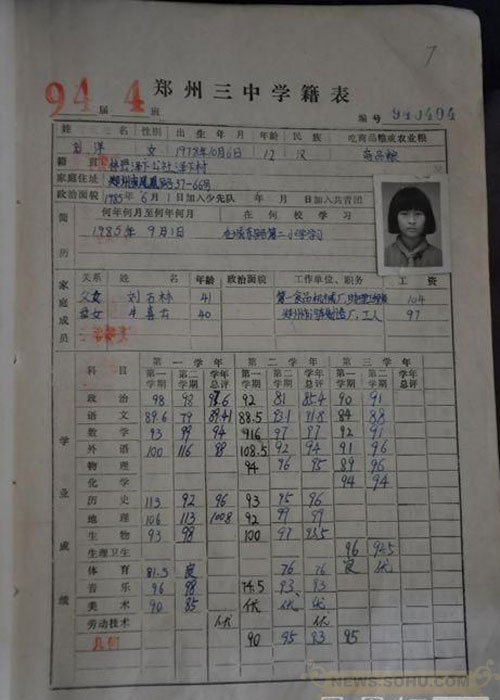 7
94届 4班 郑州三中学籍表
编号 940404
姓名 刘洋 性别 女 出生年月 1978年10月6日 年龄 12 民族 汉 吃商品粮或农业粮 商品粮
籍贯
家庭住址 37-66号
政治面貌 1985年6月1日加入少先队 年 月 日加入共青团
简历 何年何月至何年何月 在何校学习
1985年9月1日 第二小学学习
家庭成员 关系 姓名 年龄 政治面貌 工作单位、职务 工资
父女 刘士林 41 104
母女 牛喜云 40 工人 97
学业成绩 科目 第一学年 第二学年 第三学年
第一学期 第二学期 学年总评 第一学期 第二学期 学年总评 第一学期 第二学期 学年总评
政治 98 98 92 81 85.4 90 91
语文 89.6 79 88.5 93.1 91.8 84 88
数学 93 99 94 97 97 92 91
外语 100 116 108.5 92 94 91 96
物理 94 96 95 89 96
化学 94 94
历史 113 92 96 93 95 96
地理 106 113 100.8 92 99 99
生物 93 98 100 97
生理卫生 96 94.5
体育 81.5 良 76 76 良 优
音乐 96 98 74.5 93 93
美术 90 85 优 优 优
劳动技术 优 优
几何 90 95 93 95
NEWS.SOHU.COM